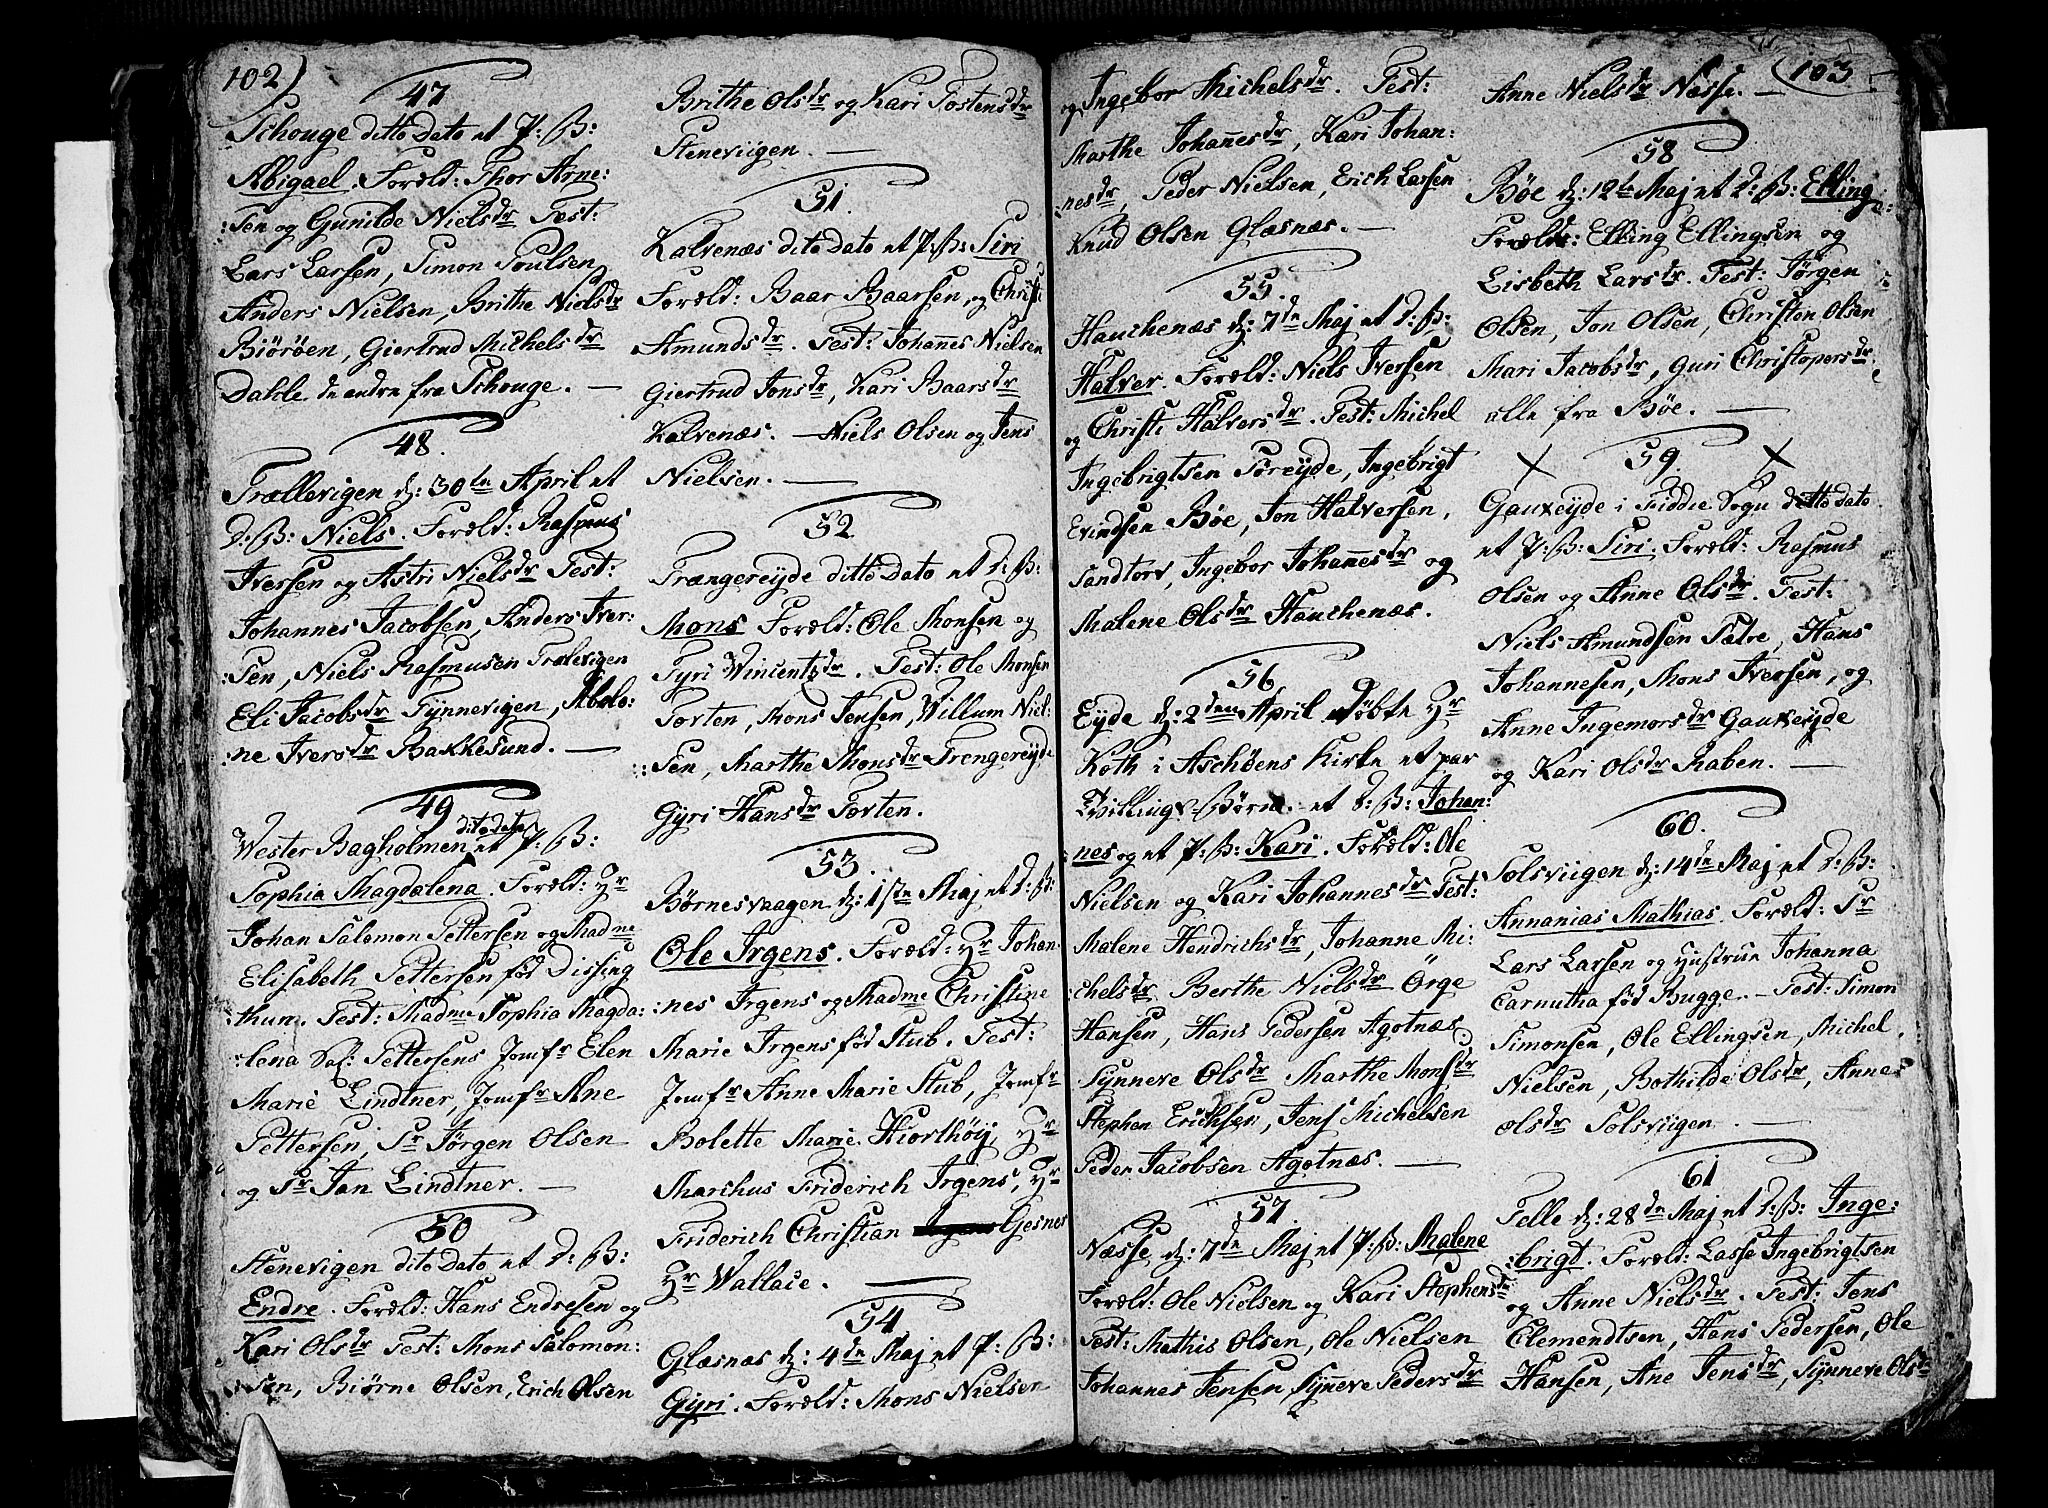 102)
47
Schouge ditto Dato et P: B:
Abigael. Foræld: Thor Arne:
:sen og Gunilde Nielsdr Test:
Lars Larsen, Simon Poulsen
Anders Nielsen, Brithe Nielsdr
Biöröen, Giertrud Michelsdr
Dahle de andre fra Schouge. —
48.
Trællevigen d: 30te April et
D: B: Niels. Foræld: Rasmus
Iversen og Astri Nielsdr Test:
Johannes Jacobsen, Anders Iver:
:sen, Niels Rasmusen Trælevigen
Eli Jacobsdr Tynnevigen, Abelo:
:ne Iversdr Bakkesund. —
49
Wester Bagholmen dito dato et P: B:
Sophia Magdalena. Foræld: Hr
Johan Salomon Pettersen og Madme
Elisabeth Pettersen fød Dissing
thun. Test: Madme Sophia Magda:
:lena Sal: Pettersens Jomfr Elen
Marie Lindtner, Jomfr Ane
Pettersen, Sr Jörgen Olsen
og Sr Jan Lindtner. —
50
Stenevigen dito Dato et D: B:
Endre. Foræld: Hans Endresen og
Kari Olsdr Test: Mons Salomon:
:sen, Biörne Olsen, Erich Olsen
Brithe Olsdr og Kari Tostensdr
Steneviigen. —
51.
Kalvenæs dito Dato et P: B: Siri
Foræld: Baar Baarsen, og Christi
Amundsdr. Test: Johannes Nielsen
Giertrud Jonsdr, Kari Baarsdr
Kalvenæs. — Niels Olsen og Jens
Nielsen. —
52
Trængereyde ditto Dato et D: B:
Mons Foræld: Ole Monsen og
Syri Wincentzdr. Test: Ole Monsen
Torten, Mons Jensen, Willum Niel:
:sen, Marthe Monsdr Trengereyde
Gyri Hansdr Torten.
53.
Börnesvaagen d: 1ste Maj et D: B:
Ole Irgens. Foræld: Hr Johan
:nes Irgens og Madme Christine
Marie Irgens fød Stub. Test:
Jomfr Anne Marie Stub, Jomfr
Bolette Marie Hiorthöij, Hr
Marchus Friderich Irgens, Hr
Friderich Christian Gesner
Hr Wallace. —
54
Glæsnæs d: 4de Maj et P: B:
Gyri. Foræld: Mons Nielsen
(103
og Ingebor Michelsdr. Test:
Marthe Johannesdr, Kari Johan:
:nesdr, Peder Nielsen, Erich Larsen
Knud Olsen Glæsnæs. —
55.
Hauchenæs d: 7de Maj et D: B:
Halver. Foræld: Niels Iversen
og Christi Halversdr. Test: Michel
Ingebrigtsen Söreyde, Ingebrigt
Evindsen Böe, Jon Halversen,
Sandtorv, Ingebor Johannesdr og
Malene Olsdr Hauchenæs.
56
Eyde d: 2den April döbte Hr
Koth i Aschöens Kirke et par
Tvillings-Börn. et D: B: Johan:
nes og et P: B: Kari. Foræld: Ole
Nielsen og Kari Johannesdr Test:
Malene Hendrichsdr, Johanne Mi:
:chelsdr Berthe Nielsdr Örge
Hansen, Hans Pedersen Agotnæs
Synneve Olsdr Marthe Monsdr
Stephen Erichsen, Jens Michelsen
Peder Jacobsen Agotnæs. —
57.
Næsse d: 7de Maj et P: B: Malene
Foræld: Ole Nielsen og Kari Stephensdr
Test: Mathis Olsen, Ole Nielsen
Johannes Jensen, Synneve Pedersdr
Anne Nielsdr Næsse. —
58
Böe d: 12te Maj et D: B: Elling
Foræld: Elling Ellingsen og
Lisbeth Larsdr. Test: Jörgen
Olsen, Jon Olsen, Christen Olsen
Mari Jacobsdr, Guri Christopersdr
alle fra Böe. —
59
Gauxeyde i Fiddie Sogn ditto Dato
et P: B: Siri. Foræld: Rasmus
Olsen og Anne Olsdr. Test:
Niels Amundsen Tatre, Hans
Johannesen, Mons Iversen, og
Anne Ingemorsdr Gauxeyde
og Kari Olsdr Raben. —
60.
Solsviigen d: 14de Maj et D: B:
Annanias Mathias. Foræld: Sr
Lars Larsen og Hustrue Johanna
Carnutha fød Bugge. — Test: Simon
Simonsen, Ole Ellingsen, Michel
Nielsen, Bothilde Olsdr, Anne
Olsdr Solsviigen. —
61
Telle d: 28de Maj et D: B: Inge:
:brigt. Foræld: Lasse Ingebrigtsen
og Anne Nielsdr. Test: Jens
Clemendtsen, Hans Pedersen, Ole
Hansen, Ane Jensdr, Synneve Olsdr